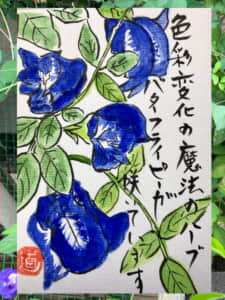 色彩変化の魔法のハーブ
バタフライピーが
咲いています
道